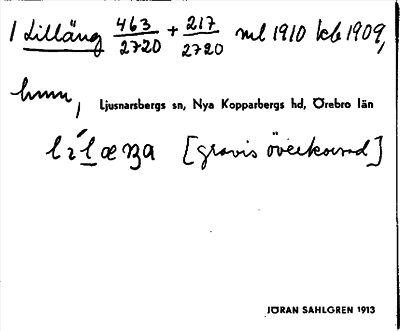 1 Lilläng 463/2720 + 217/2720 ml 1910 kb 1909,
hmn, Ljusnarsbergs sn, Nya Kopparbergs hd, Örebro län
[gravis överkorsad]
JÖRAN SAHLGREN 1913